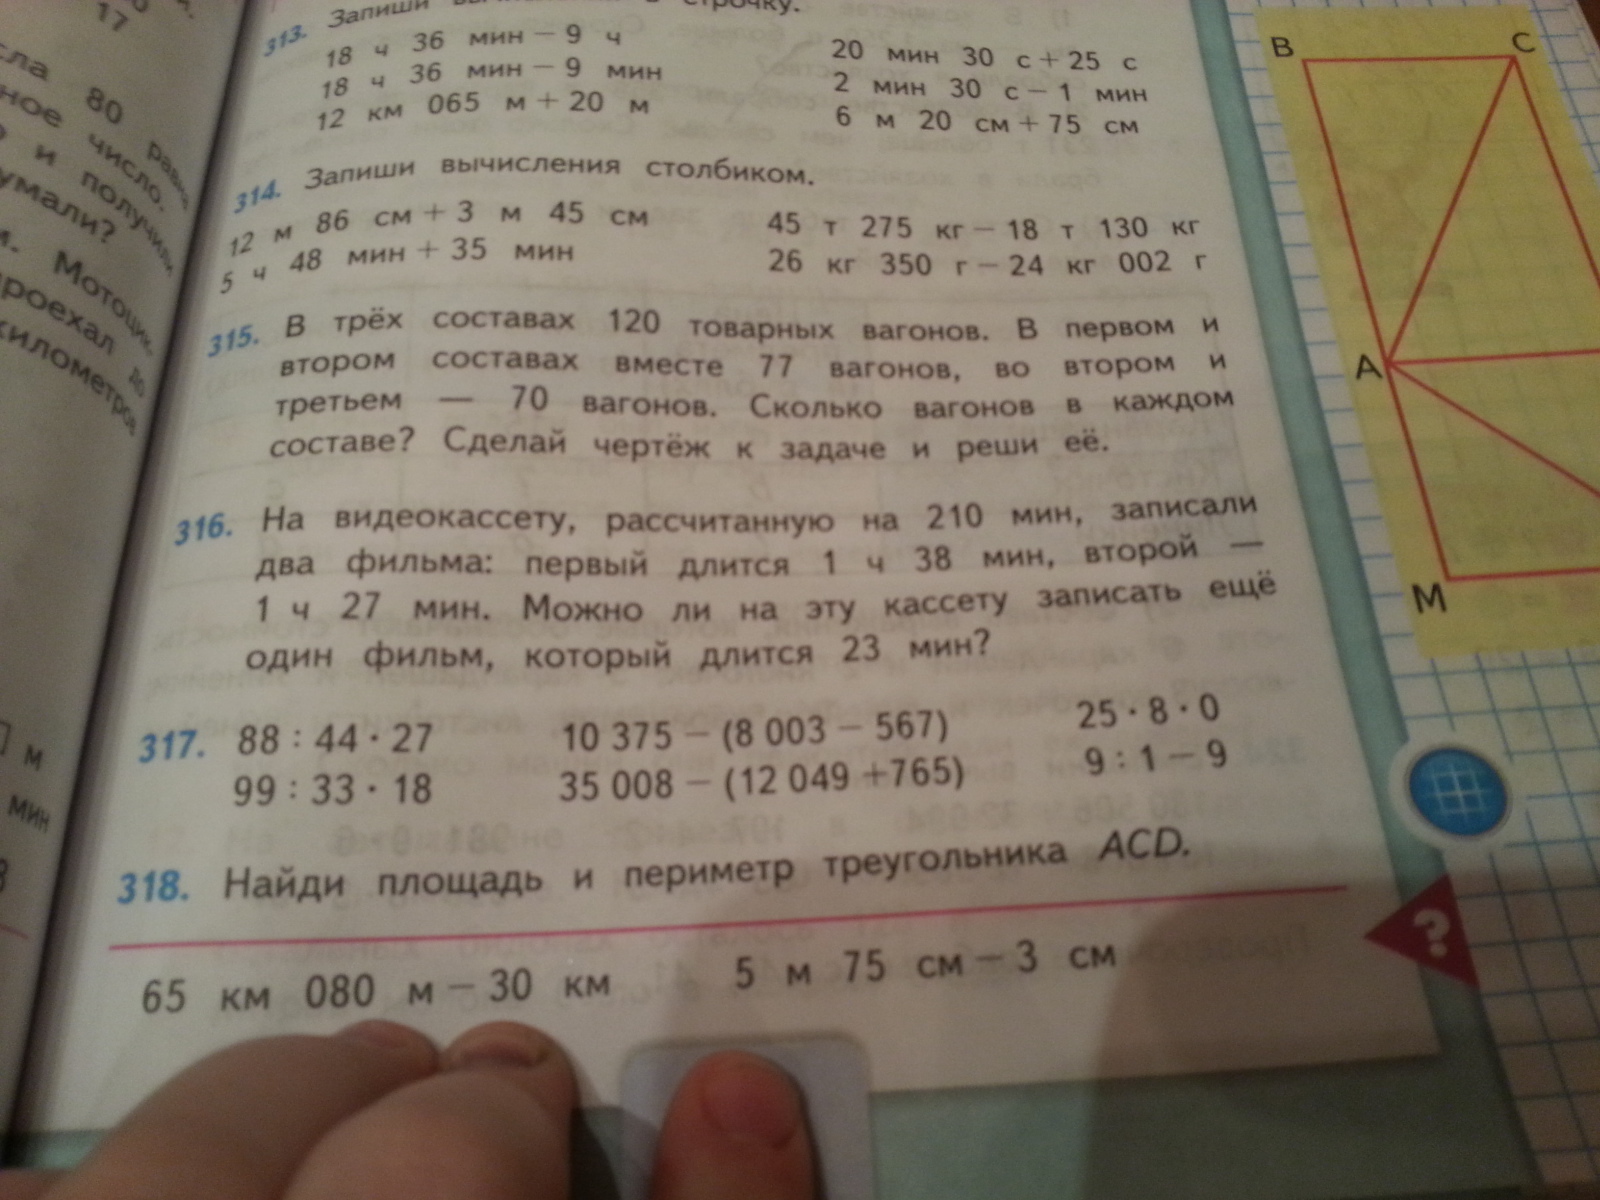 17
сла 80 равна
ное число.
и получили
умали?
м. Мотоцик-
проехал до
километров
м
мин
313. Запиши строчку.
18 ч 36 мин − 9 ч
18 ч 36 мин − 9 мин
12 км 065 м + 20 м
20 мин 30 с + 25 с
2 мин 30 с − 1 мин
6 м 20 см + 75 см
314. Запиши вычисления столбиком.
12 м 86 см + 3 м 45 см
5 ч 48 мин + 35 мин
45 т 275 кг − 18 т 130 кг
26 кг 350 г − 24 кг 002 г
315. В трёх составах 120 товарных вагонов. В первом и
втором составах вместе 77 вагонов, во втором и
третьем — 70 вагонов. Сколько вагонов в каждом
составе? Сделай чертёж к задаче и реши её.
316. На видеокассету, рассчитанную на 210 мин, записали
два фильма: первый длится 1 ч 38 мин, второй —
1 ч 27 мин. Можно ли на эту кассету записать ещё
один фильм, который длится 23 мин?
317. 88 : 44 · 27
99 : 33 · 18
10 375 − (8 003 − 567)
35 008 − (12 049 + 765)
25 · 8 · 0
9 : 1 − 9
318. Найди площадь и периметр треугольника ACD.
65 км 080 м − 30 км
5 м 75 см − 3 см
?
B
C
A
M